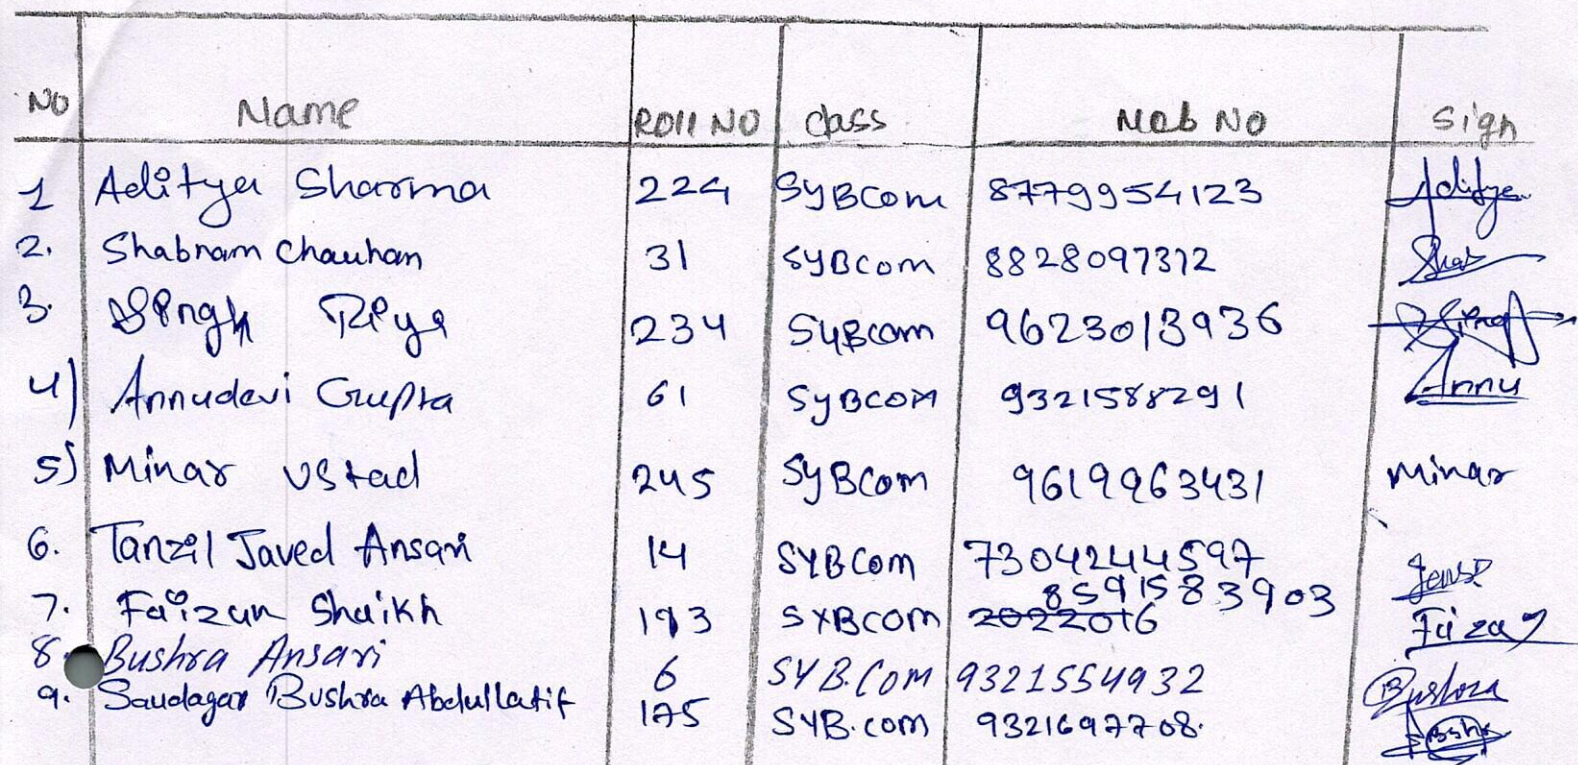 No Name Roll No class Mob No Sign
1 Aditya Sharma 224 SYBCom 8779954123 Aditya
2. Shabnam Chauhan 31 SYBCom 8828097372 Shab
3. Singh Riya 234 SYBcom 9623013936
4) Annudevi Gupta 61 SYBCOM 9321588291 Annu
5) Minar Ustad 245 SYBCom 9619963431 Minar
6. Tanzil Javed Ansari 14 SYBCom 7304244597
8591583903
7. Faizan Shaikh 193 SYBCOM 2022016 Faizan
8. Bushra Ansari 6 SYB.Com 9321554932 Bushra
9. Saudagar Bushra Abdullatif 175 SYB.com 9321697708.